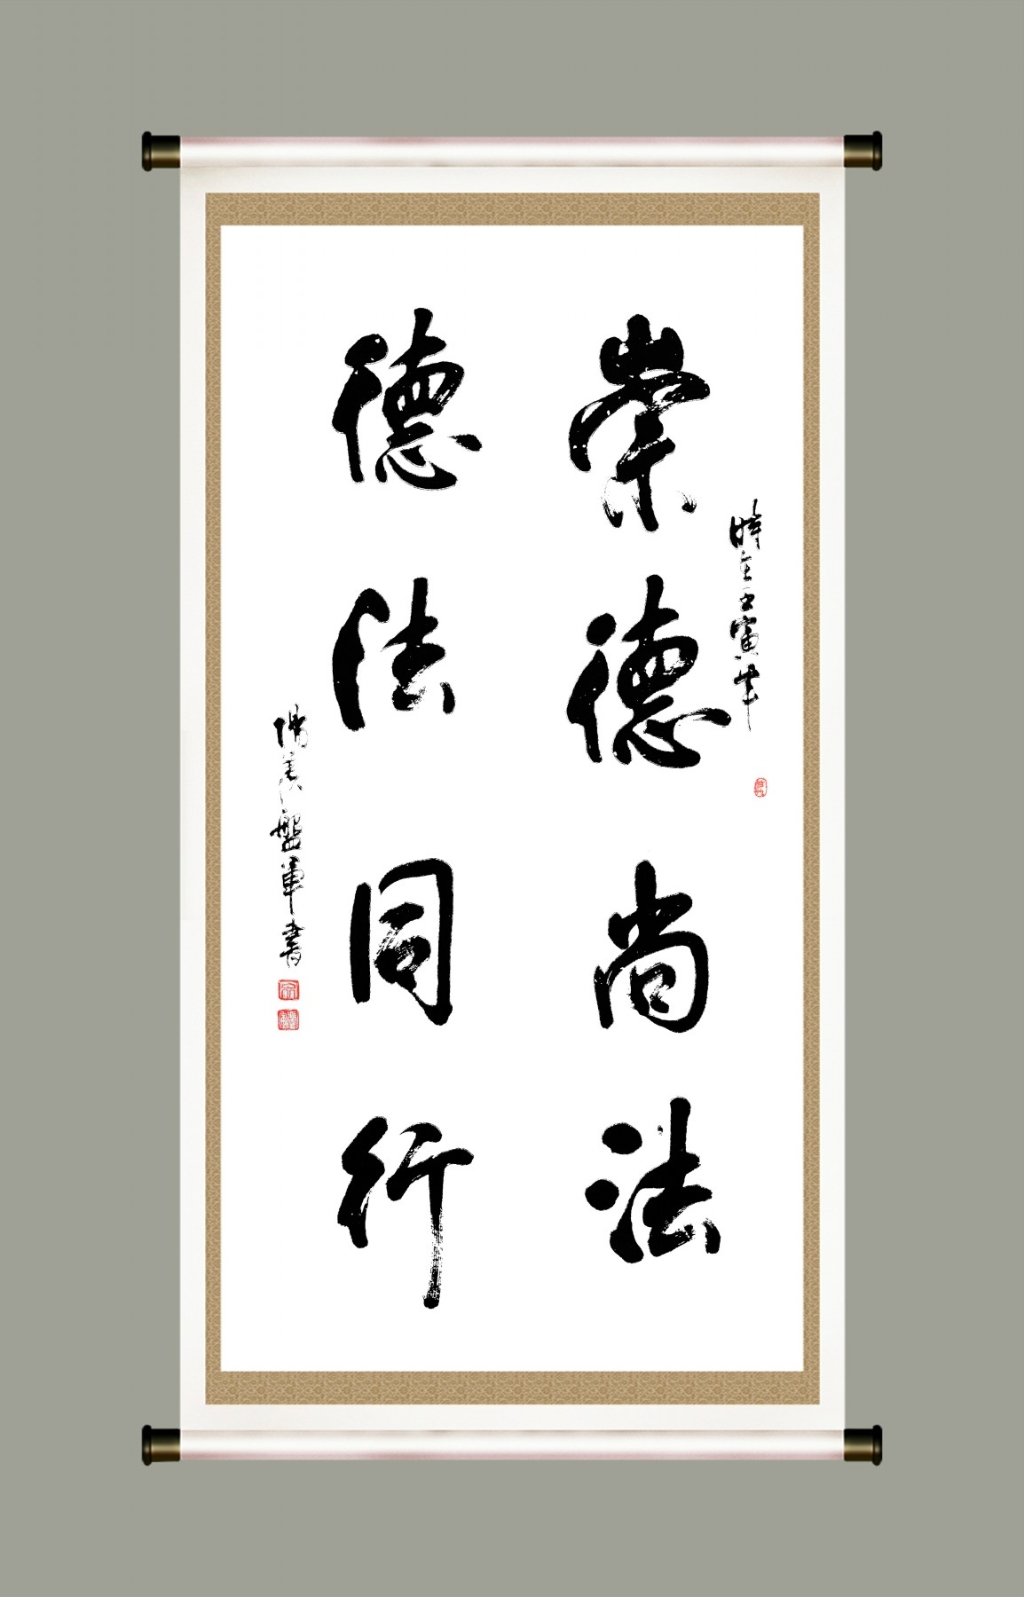 時在壬寅年
崇德尚法
德法同行
盤軍書